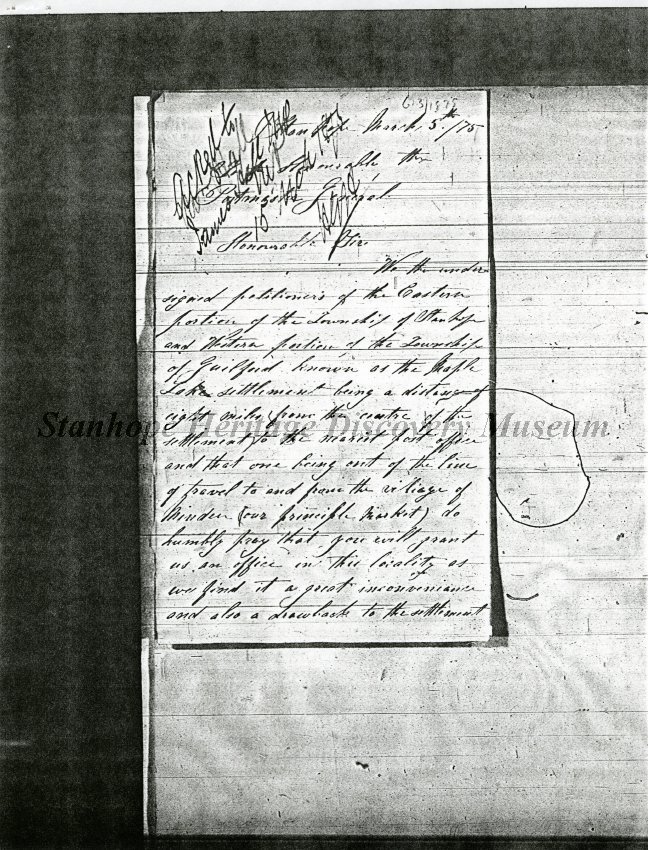 63/1875
Stanhope March 5th/75
Honourable the
Postmaster General
Honourable Sir
We the under
signed petitioners of the Eastern
portion of the Township of Stanhope
and Western portion of the Township
of Guilford known as the Maple
Lake settlement being a distance of
eight miles from the centre of the
settlement to the nearest post office
and that one being out of the line
of travel to and from the village of
Minden (our principle Market) do
humbly pray that you will grant
us an office in this locality as
we find it a great inconvenience
and also a drawback to the settlement
Stanhope Heritage Discovery Museum